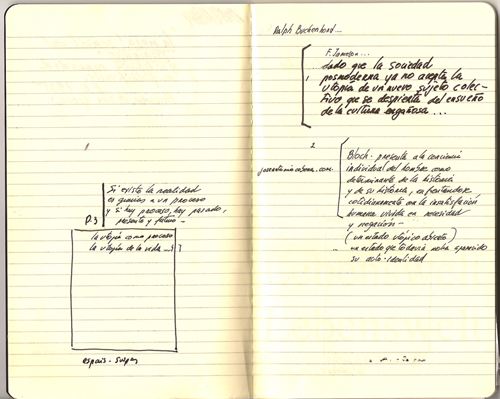 Si existe la realidad
es gracias a un proceso
y si hay proceso, hay pasado,
presente y futuro -
P.3
la utopía como proceso
la utopía de la vida
Ralph Buchenhord...
F. Jameson...
dado que la sociedad
posmoderna ya no acepta la
utopía de un nuevo sujeto colec-
tivo que se despierta del ensueño
de la cultura engañosa...
2
Bloch. presenta a la conciencia
individual del hombre como
determinante de la historia
y de su historia, enfrentándose
cotidianamente con la insatisfacción
humana vivida en necesidad
y negación -
(un estado utópico abierto)
... un estado que todavía no ha aparecido
su auto-identidad